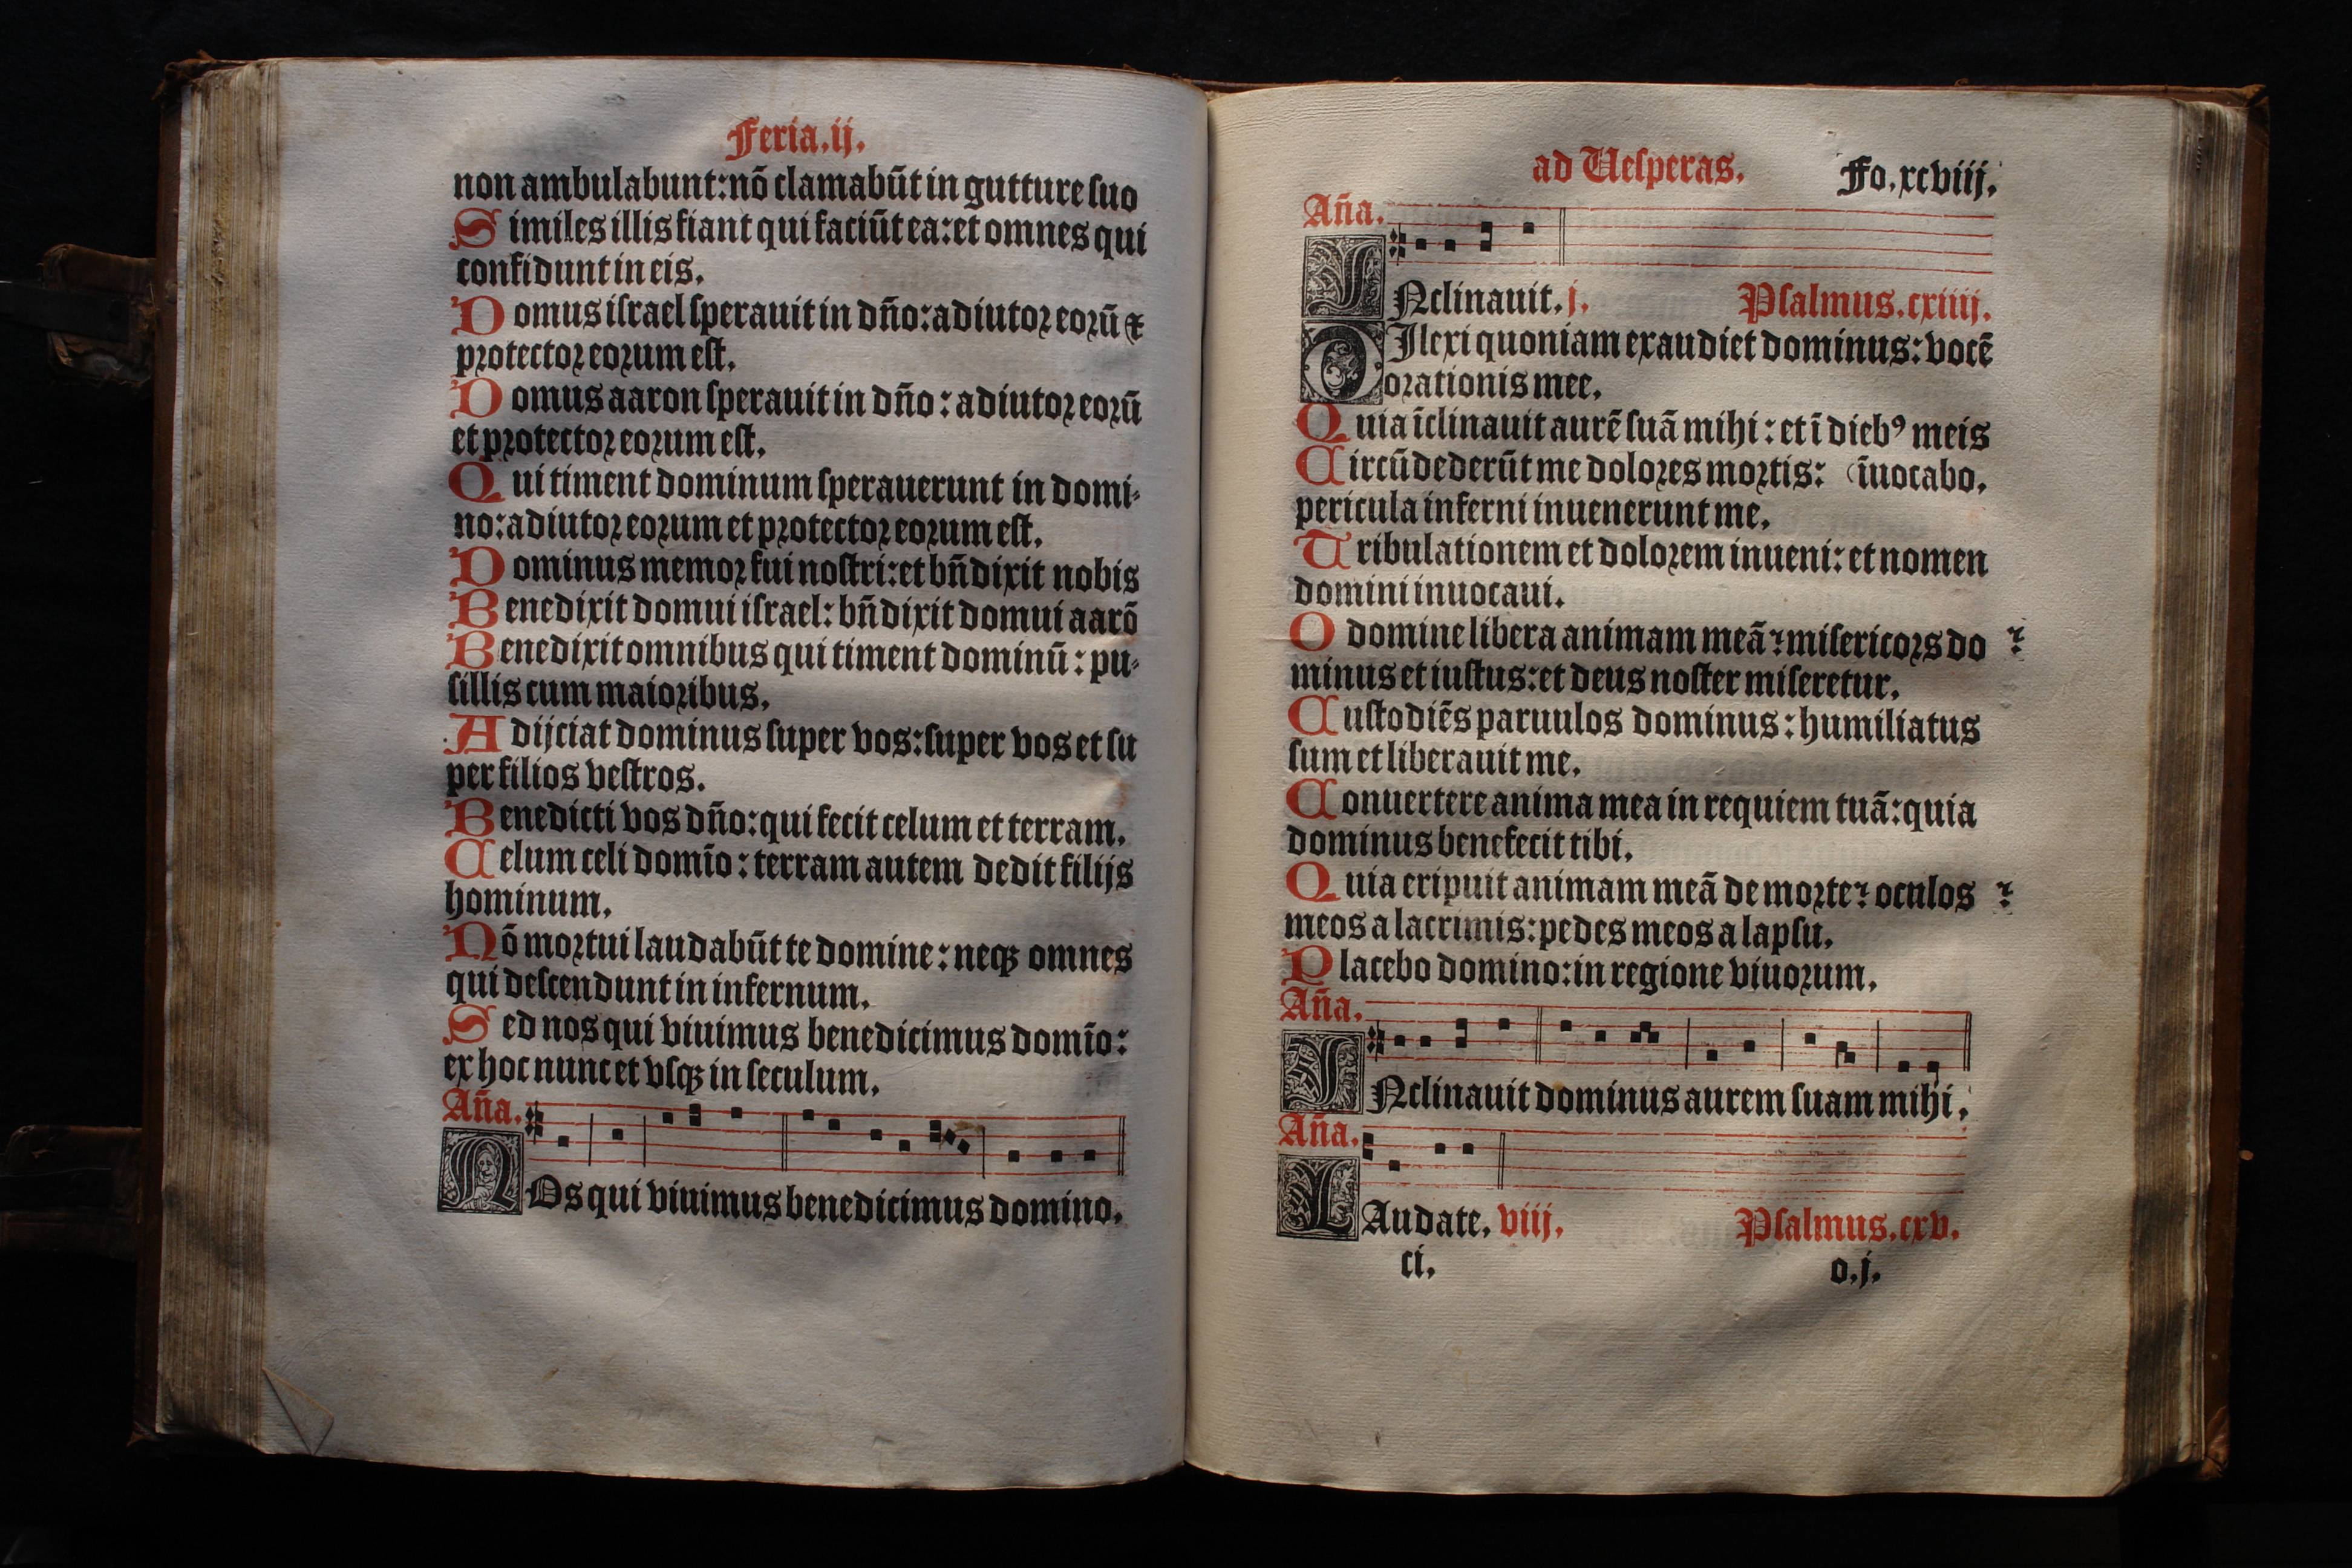 Feria.ij.
non ambulabunt:nō clamabūt in gutture ſuo
Similes illis fiant qui faciūt ea:et omnes qui
confidunt in eis.
Domus iſrael ſperauit in dño:adiutoꝛ eoꝛū ⁊
pꝛotectoꝛ eoꝛum eſt.
Domus aaron ſperauit in dño:adiutoꝛ eoꝛū
et pꝛotectoꝛ eoꝛum eſt.
Qui timent dominum ſperauerunt in domi-
no:adiutoꝛ eoꝛum et pꝛotectoꝛ eoꝛum eſt.
Dominus memoꝛ fui noſtri:et bñdixit nobis
Benedixit domui iſrael:bñdixit domui aarō
Benedixit omnibus qui timent dominū:pu-
ſillis cum maioꝛibus.
Adijciat dominus ſuper vos:ſuper vos et ſu
per filios veſtros.
Benedicti vos dño:qui fecit celum et terram.
Celum celi domīo:terram autem dedit filijs
hominum.
Nō moꝛtui laudabūt te domine:neqꝫ omnes
qui deſcendunt in infernum.
Sed nos qui viuimus benedicimus domīo:
ex hoc nunc et vſqꝫ in ſeculum.
Aña.
NOs qui viuimus benedicimus domino.
ad Ueſperas. Fo.xcviij.
Aña.
INclinauit.j. Pſalmus.cxiiij.
DIlexi quoniam exaudiet dominus:vocē
oꝛationis mee.
Quia īclinauit aurē ſuā mihi:et ī dieb⁹ meis
Circūdederūt me doloꝛes moꝛtis: (īuocabo.
pericula inferni inuenerunt me.
Tribulationem et doloꝛem inueni:et nomen
domini inuocaui.
O domine libera animam meā:miſericoꝛs do
minus et iuſtus:et deus noſter miſeretur.
Cuſtodiēs paruulos dominus:humiliatus
ſum et liberauit me.
Conuertere anima mea in requiem tuā:quia
dominus benefecit tibi.
Quia eripuit animam meā de moꝛte:oculos
meos a lacrimis:pedes meos a lapſu.
Placebo domino:in regione viuoꝛum.
Aña.
INclinauit dominus aurem ſuam mihi.
Aña.
LAudate.viij. Pſalmus.cxv.
ci. o.j.